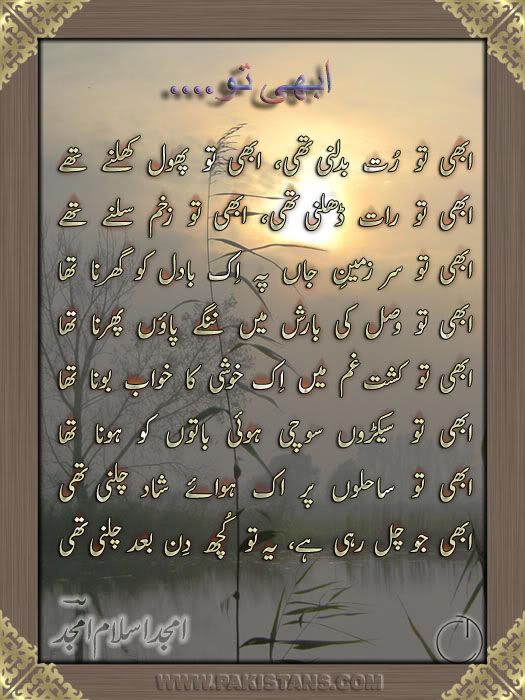 ابھی تو....
ابھی تو رُت بدلنی تھی، ابھی تو پھول کھلنے تھے
ابھی تو رات ڈھلنی تھی، ابھی تو زخم سلنے تھے
ابھی تو سر زمینِ جاں پہ اِک بادل کو گھرنا تھا
ابھی تو وصل کی بارش میں ننگے پاؤں پھرنا تھا
ابھی تو کشتِ غم میں اِک خوشی کا خواب بونا تھا
ابھی تو سیکڑوں سوچی ہوئی باتوں کو ہونا تھا
ابھی تو ساحلوں پر اک ہوائے شاد چلنی تھی
ابھی جو چل رہی ہے، یہ تو کُچھ دِن بعد چلنی تھی
امجد اسلام امجدؔ
WWW.PAKISTANS.COM